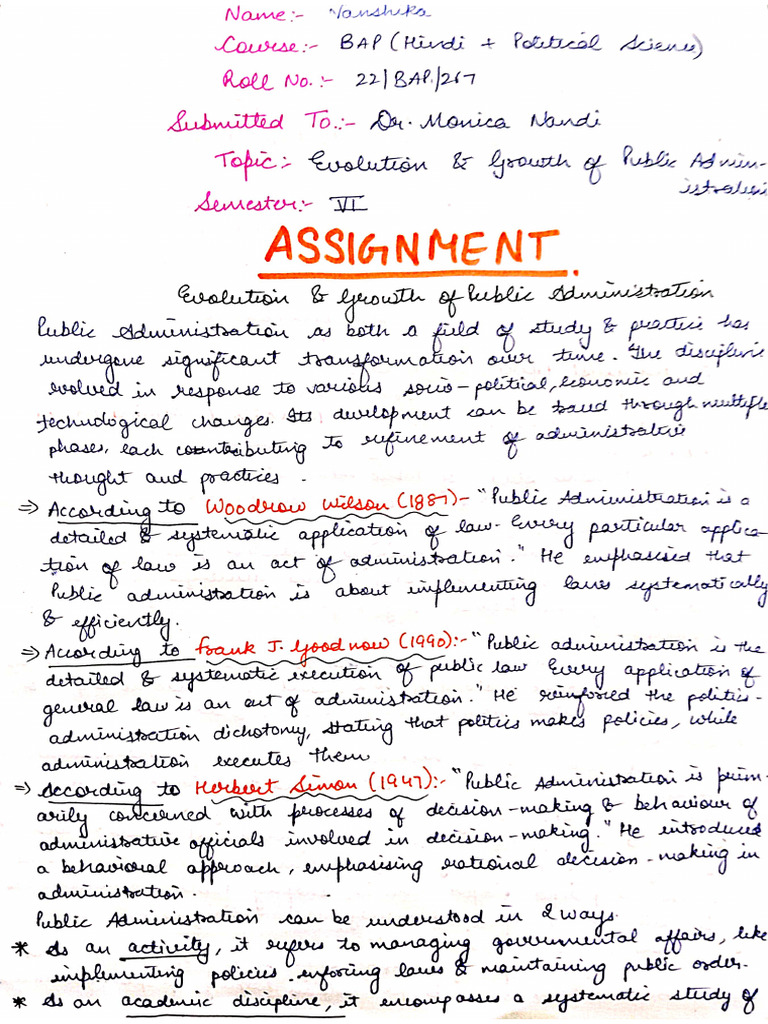 Name:- Vanshika
Course:- BAP (Hindi + Political Science)
Roll No.:- 22/BAP/267
Submitted To:- Dr. Monica Nandi
Topic:- Evolution & Growth of Public Admin-
istration
Semester:- VI
ASSIGNMENT.
Evolution & Growth of Public Administration
Public Administration as both a field of study & practice has
undergone significant transformation over time. The discipline
evolved in response to various socio-political, economic and
technological changes. Its development can be traced through multiple
phases, each contributing to refinement of administrative
thought and practices.
⇒ According to Woodrow Wilson (1887)- "Public Administration is a
detailed & systematic application of law. Every particular applica-
tion of law is an act of administration." He emphasised that
Public administration is about implementing laws systematically
& efficiently.
⇒ According to Frank J. Goodnow (1990):- "Public administration is the
detailed & systematic execution of public law Every application of
general law is an act of administration." He reinforced the politics-
administration dichotomy, stating that politics makes policies, while
administration executes them
⇒ According to Herbert Simon (1947):- "Public Administration is prim-
arily concerned with processes of decision-making & behaviour of
administrative officials involved in decision-making." He introduced
a behavioral approach, emphasising rational decision-making in
administration.
Public Administration can be understood in 2 ways.
* As an activity, it refers to managing governmental affairs, like
implementing policies enforing laws & maintaining public order.
* As an academic discipline, it encompasses a systematic study of